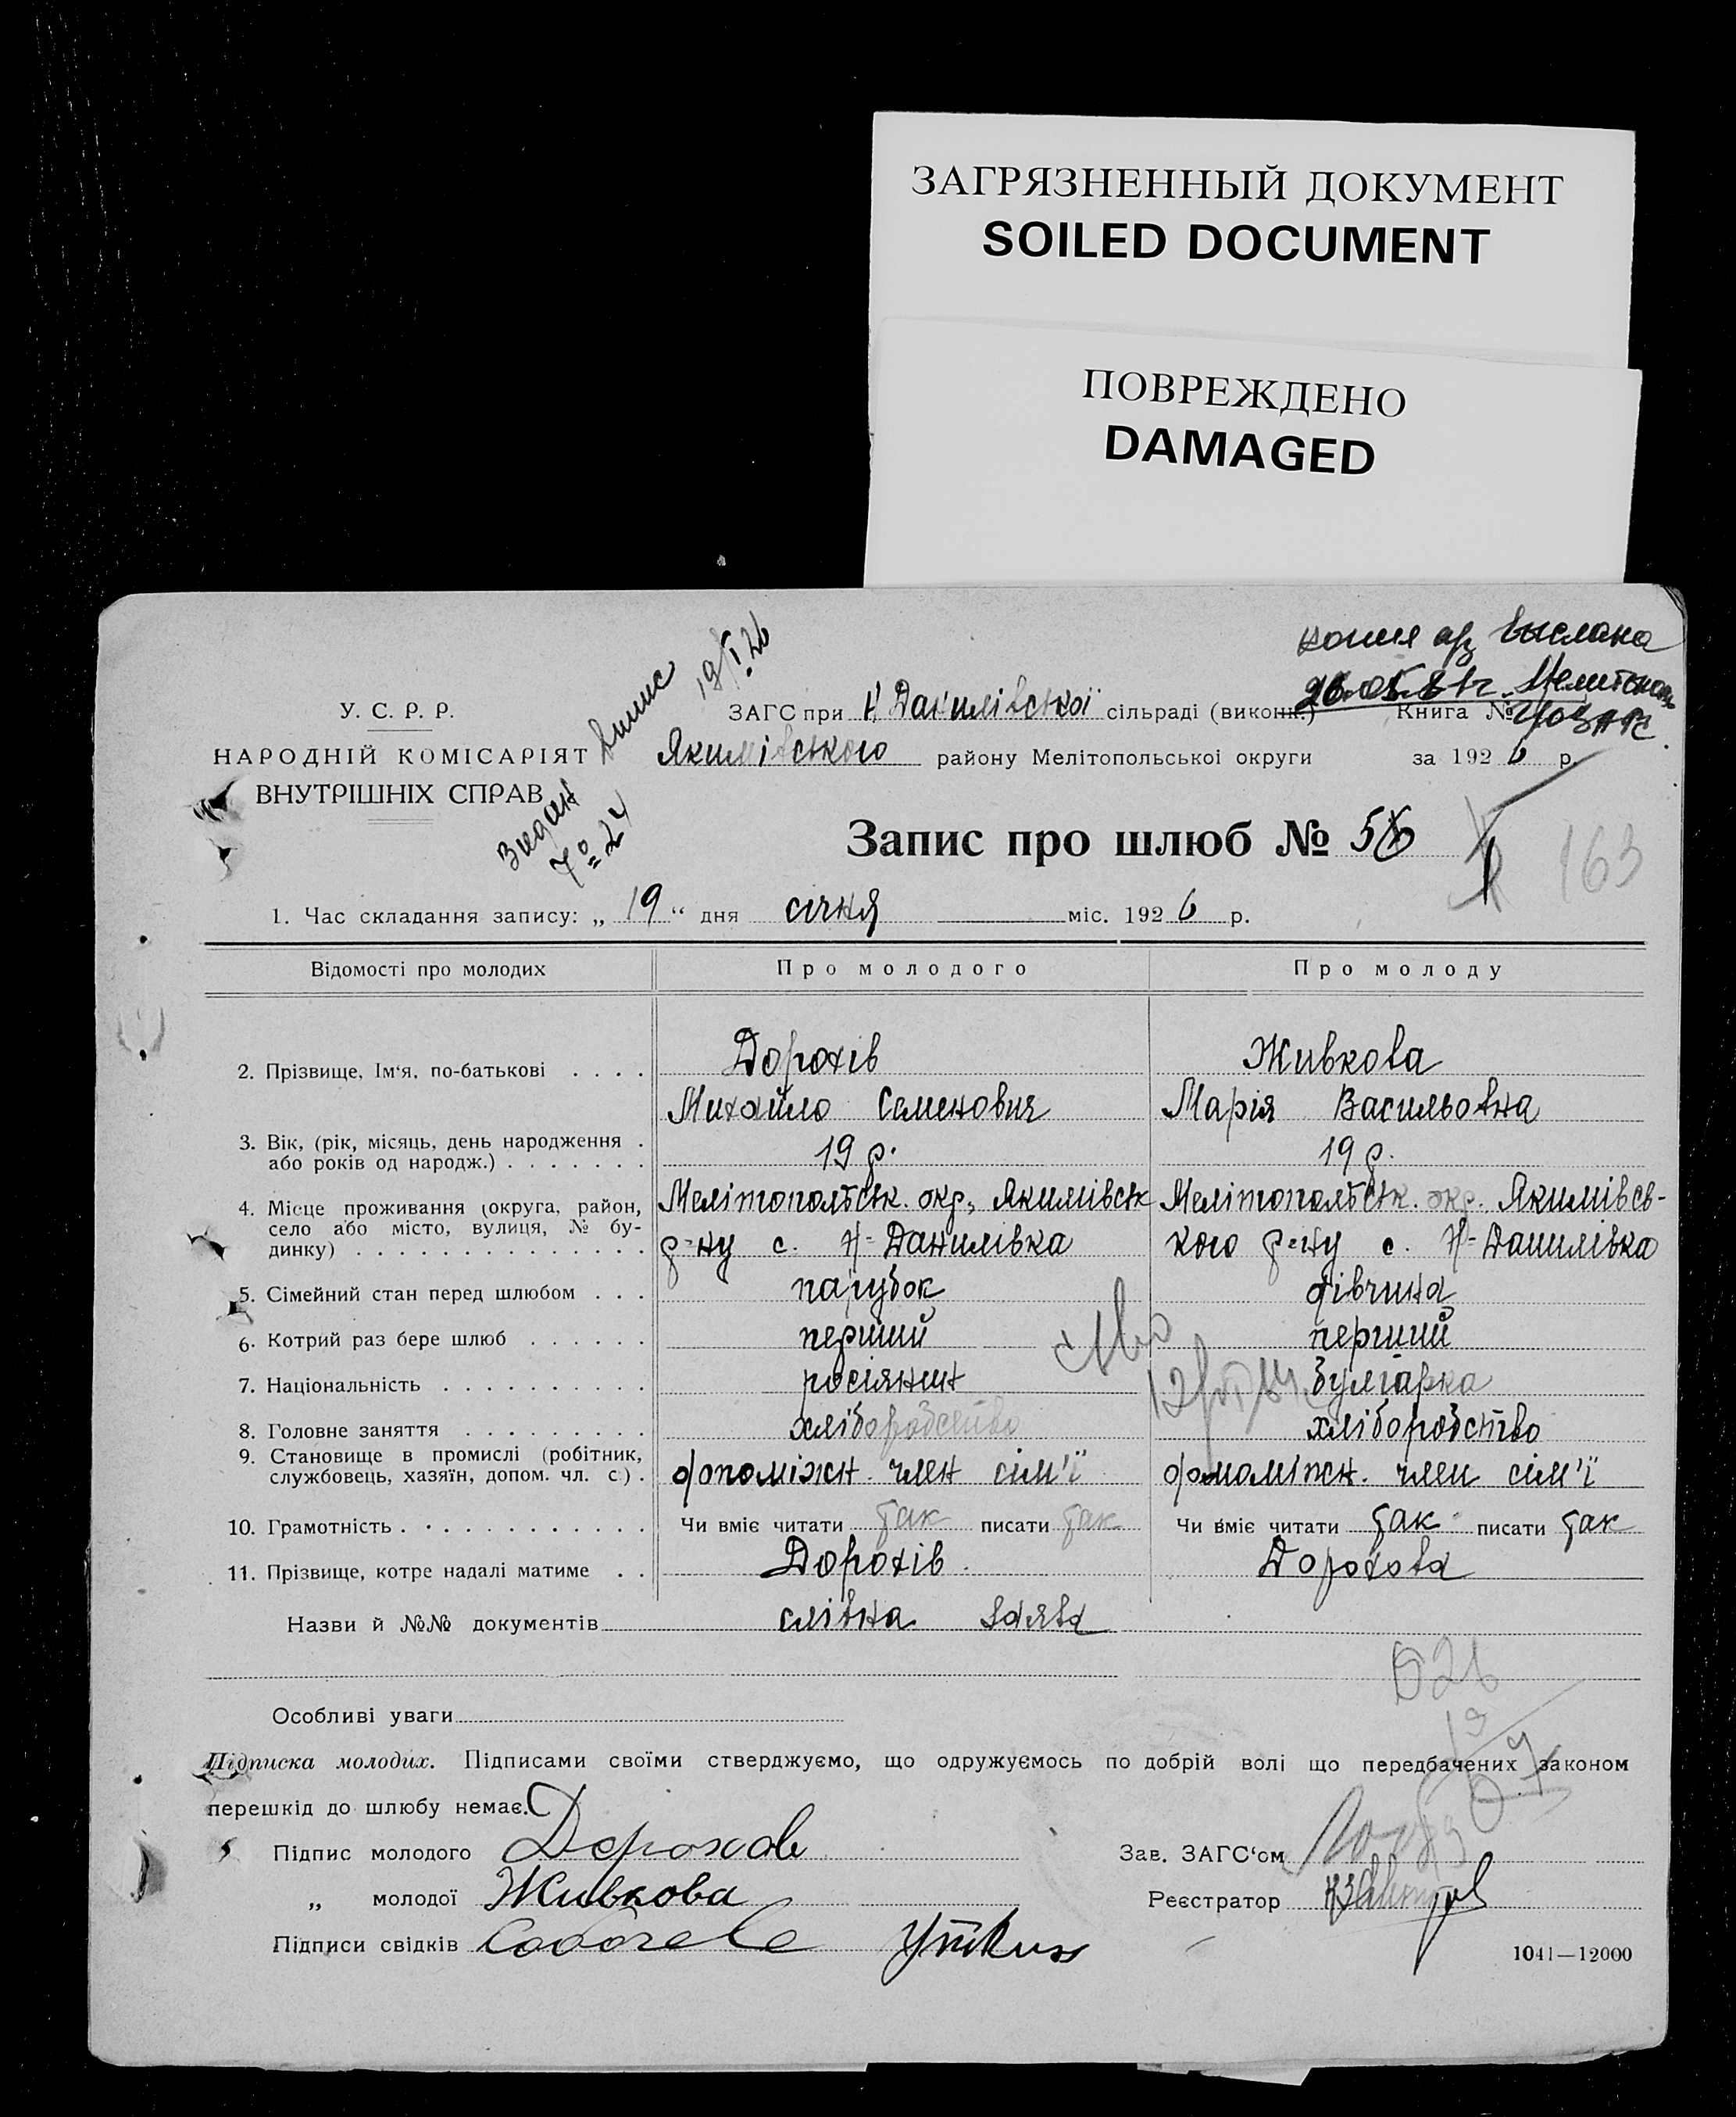 ЗАГРЯЗНЕННЫЙ ДОКУМЕНТ
SOILED DOCUMENT
ПОВРЕЖДЕНО
DAMAGED
копия а/з выслана
Мелитополь
У. С. Р. Р.
НАРОДНІЙ КОМІСАРІЯТ
ВНУТРІШНІХ СПРАВ
Видан Випис 19/I 26
№ 24
ЗАГС при Н Данилівської сільраді (виконк.) Книга №
Якимівського району Мелітопольської округи за 1926 р.
Запис про шлюб №
163
1. Час складання запису: „ 19 “ дня січня міс. 1926 р.
Відомості про молодих Про молодого Про молоду
2. Прізвище, Ім'я, по-батькові . . . . Дорохів Живкова
Михайло Семенович Марія Васильовна
3. Вік, (рік, місяць, день народження . 19 р. 19 р.
або років од народж.) . . . . . . .
4. Місце проживання (округа, район, Мелітопольськ. окр., Якимівськ Мелітопольськ. окр. Якимівсь-
село або місто, вулиця, № бу-
динку) . . . . . . . . . . . . . . р-ну с. Н-Данилівка кого р-ну с. Н-Данилівка
5. Сімейний стан перед шлюбом . . . парубок дівчина
6. Котрий раз бере шлюб . . . . . . перший перший
7. Національність . . . . . . . . . . росіянин булгарка
8. Головне заняття . . . . . . . . . хліборобство хліборобство
9. Становище в промислі (робітник,
службовець, хазяїн, допом. чл. с.) . допоміжн. член сім'ї допоміжн. член сім'ї
10. Грамотність . . . . . . . . . . . . Чи вміє читати так писати так Чи вміє читати так писати так
11. Прізвище, котре надалі матиме . . Дорохів Дорохова
Назви й №№ документів слівна заява
Особливі уваги
Підписка молодих. Підписами своїми стверджуємо, що одружуємось по добрій волі що передбачених законом
перешкід до шлюбу немає.
Підпис молодого Дорохов Зав. ЗАГС'ом
„ молодої Живкова Реєстратор
Підписи свідків
1041—12000